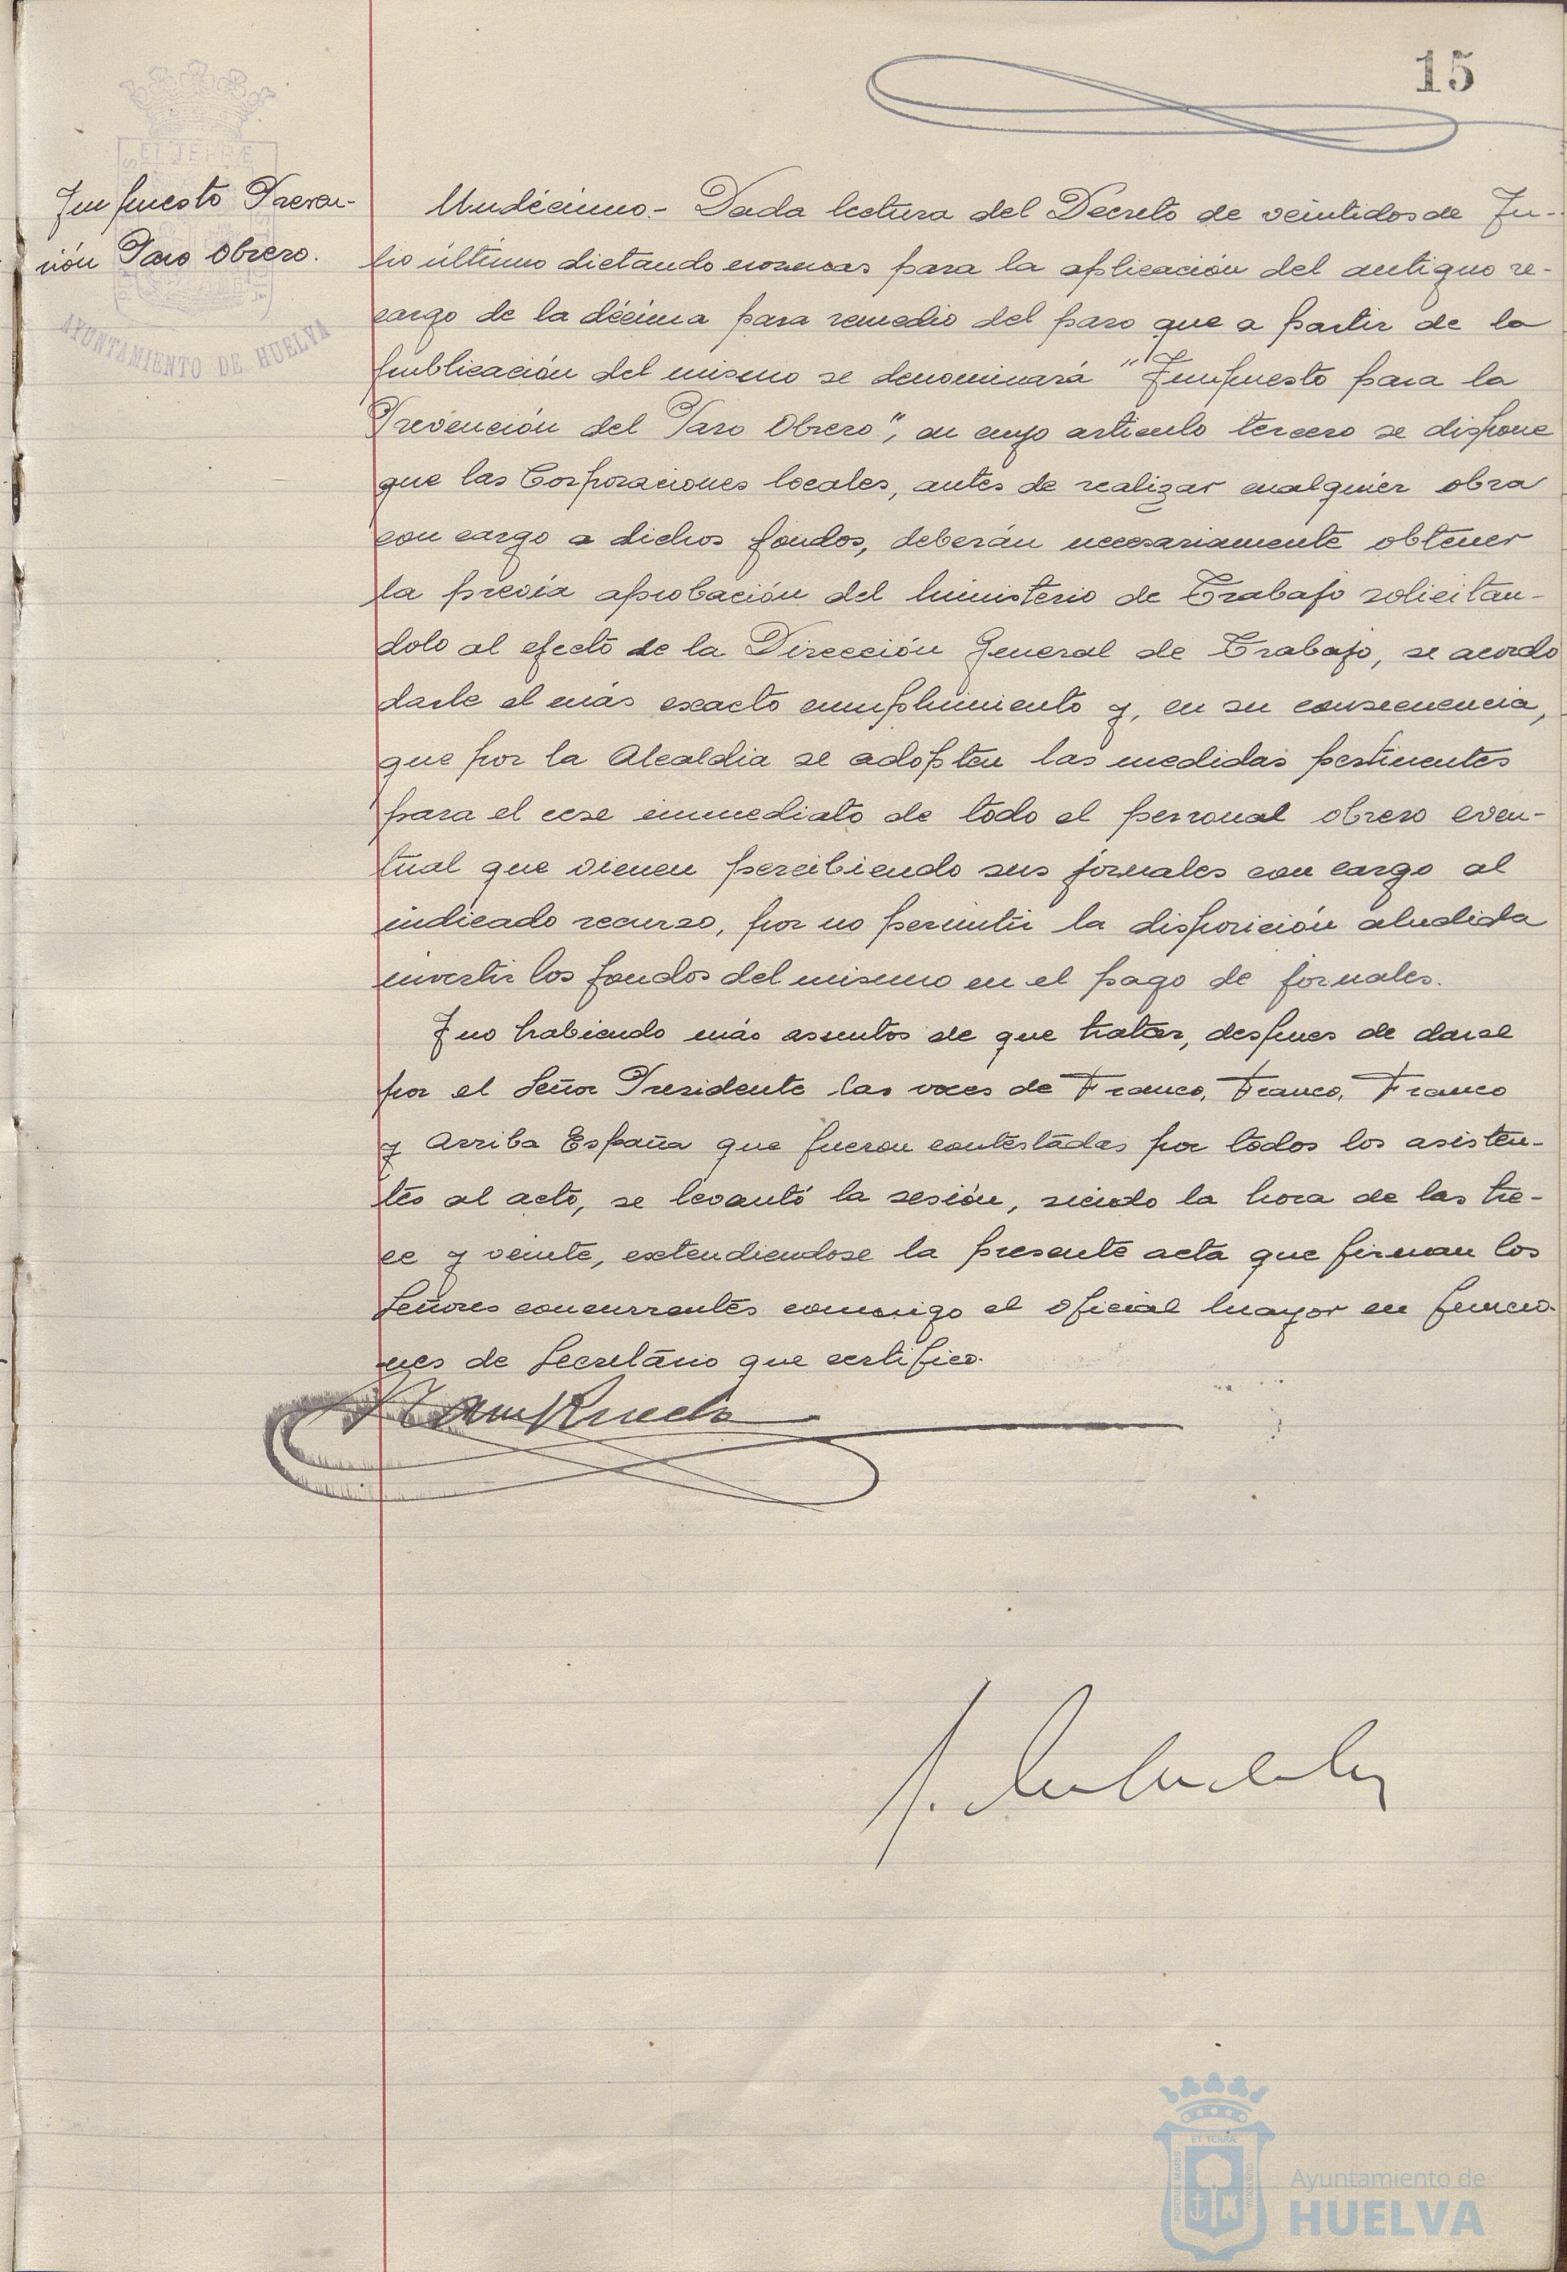 15
ET TERRÆ
AYUNTAMIENTO DE HUELVA
Impuesto Preven-
ción Paro Obrero.
Undécimo.- Dada lectura del Decreto de veintidos de Ju-
lio último dictando normas para la aplicación del antiguo re-
cargo de la décima para remedio del paro que a partir de la
publicación del mismo se denominará "Impuesto para la
Prevención del Paro Obrero", en cuyo articulo tercero se dispone
que las Corporaciones locales, antes de realizar cualquier obra
con cargo a dichos fondos, deberán necesariamente obtener
la previa aprobación del Ministerio de Trabajo solicitan-
dolo al efecto de la Dirección General de Trabajo, se acordo
darle el más exacto cumplimiento y, en su consecuencia,
que por la Alcaldia se adopten las medidas pertinentes
para el cese inmediato de todo el personal obrero even-
tual que vienen percibiendo sus jornales con cargo al
indicado recurso, por no permitir la disposición aludida
invertir los fondos del mismo en el pago de jornales.
Y no habiendo más asuntos de que tratar, despues de darse
por el Señor Presidente las voces de Franco, Franco, Franco
y Arriba España que fueron contestadas por todos los asisten-
tes al acto, se levantó la sesión, siendo la hora de las tre-
ce y veinte, extendiendose la presente acta que firman los
Señores concurrentes conmigo el Oficial Mayor en funcio-
nes de Secretario que certifico.
ET TERRÆ
PORTUS MARIS
CUSTODIA
Ayuntamiento de
HUELVA